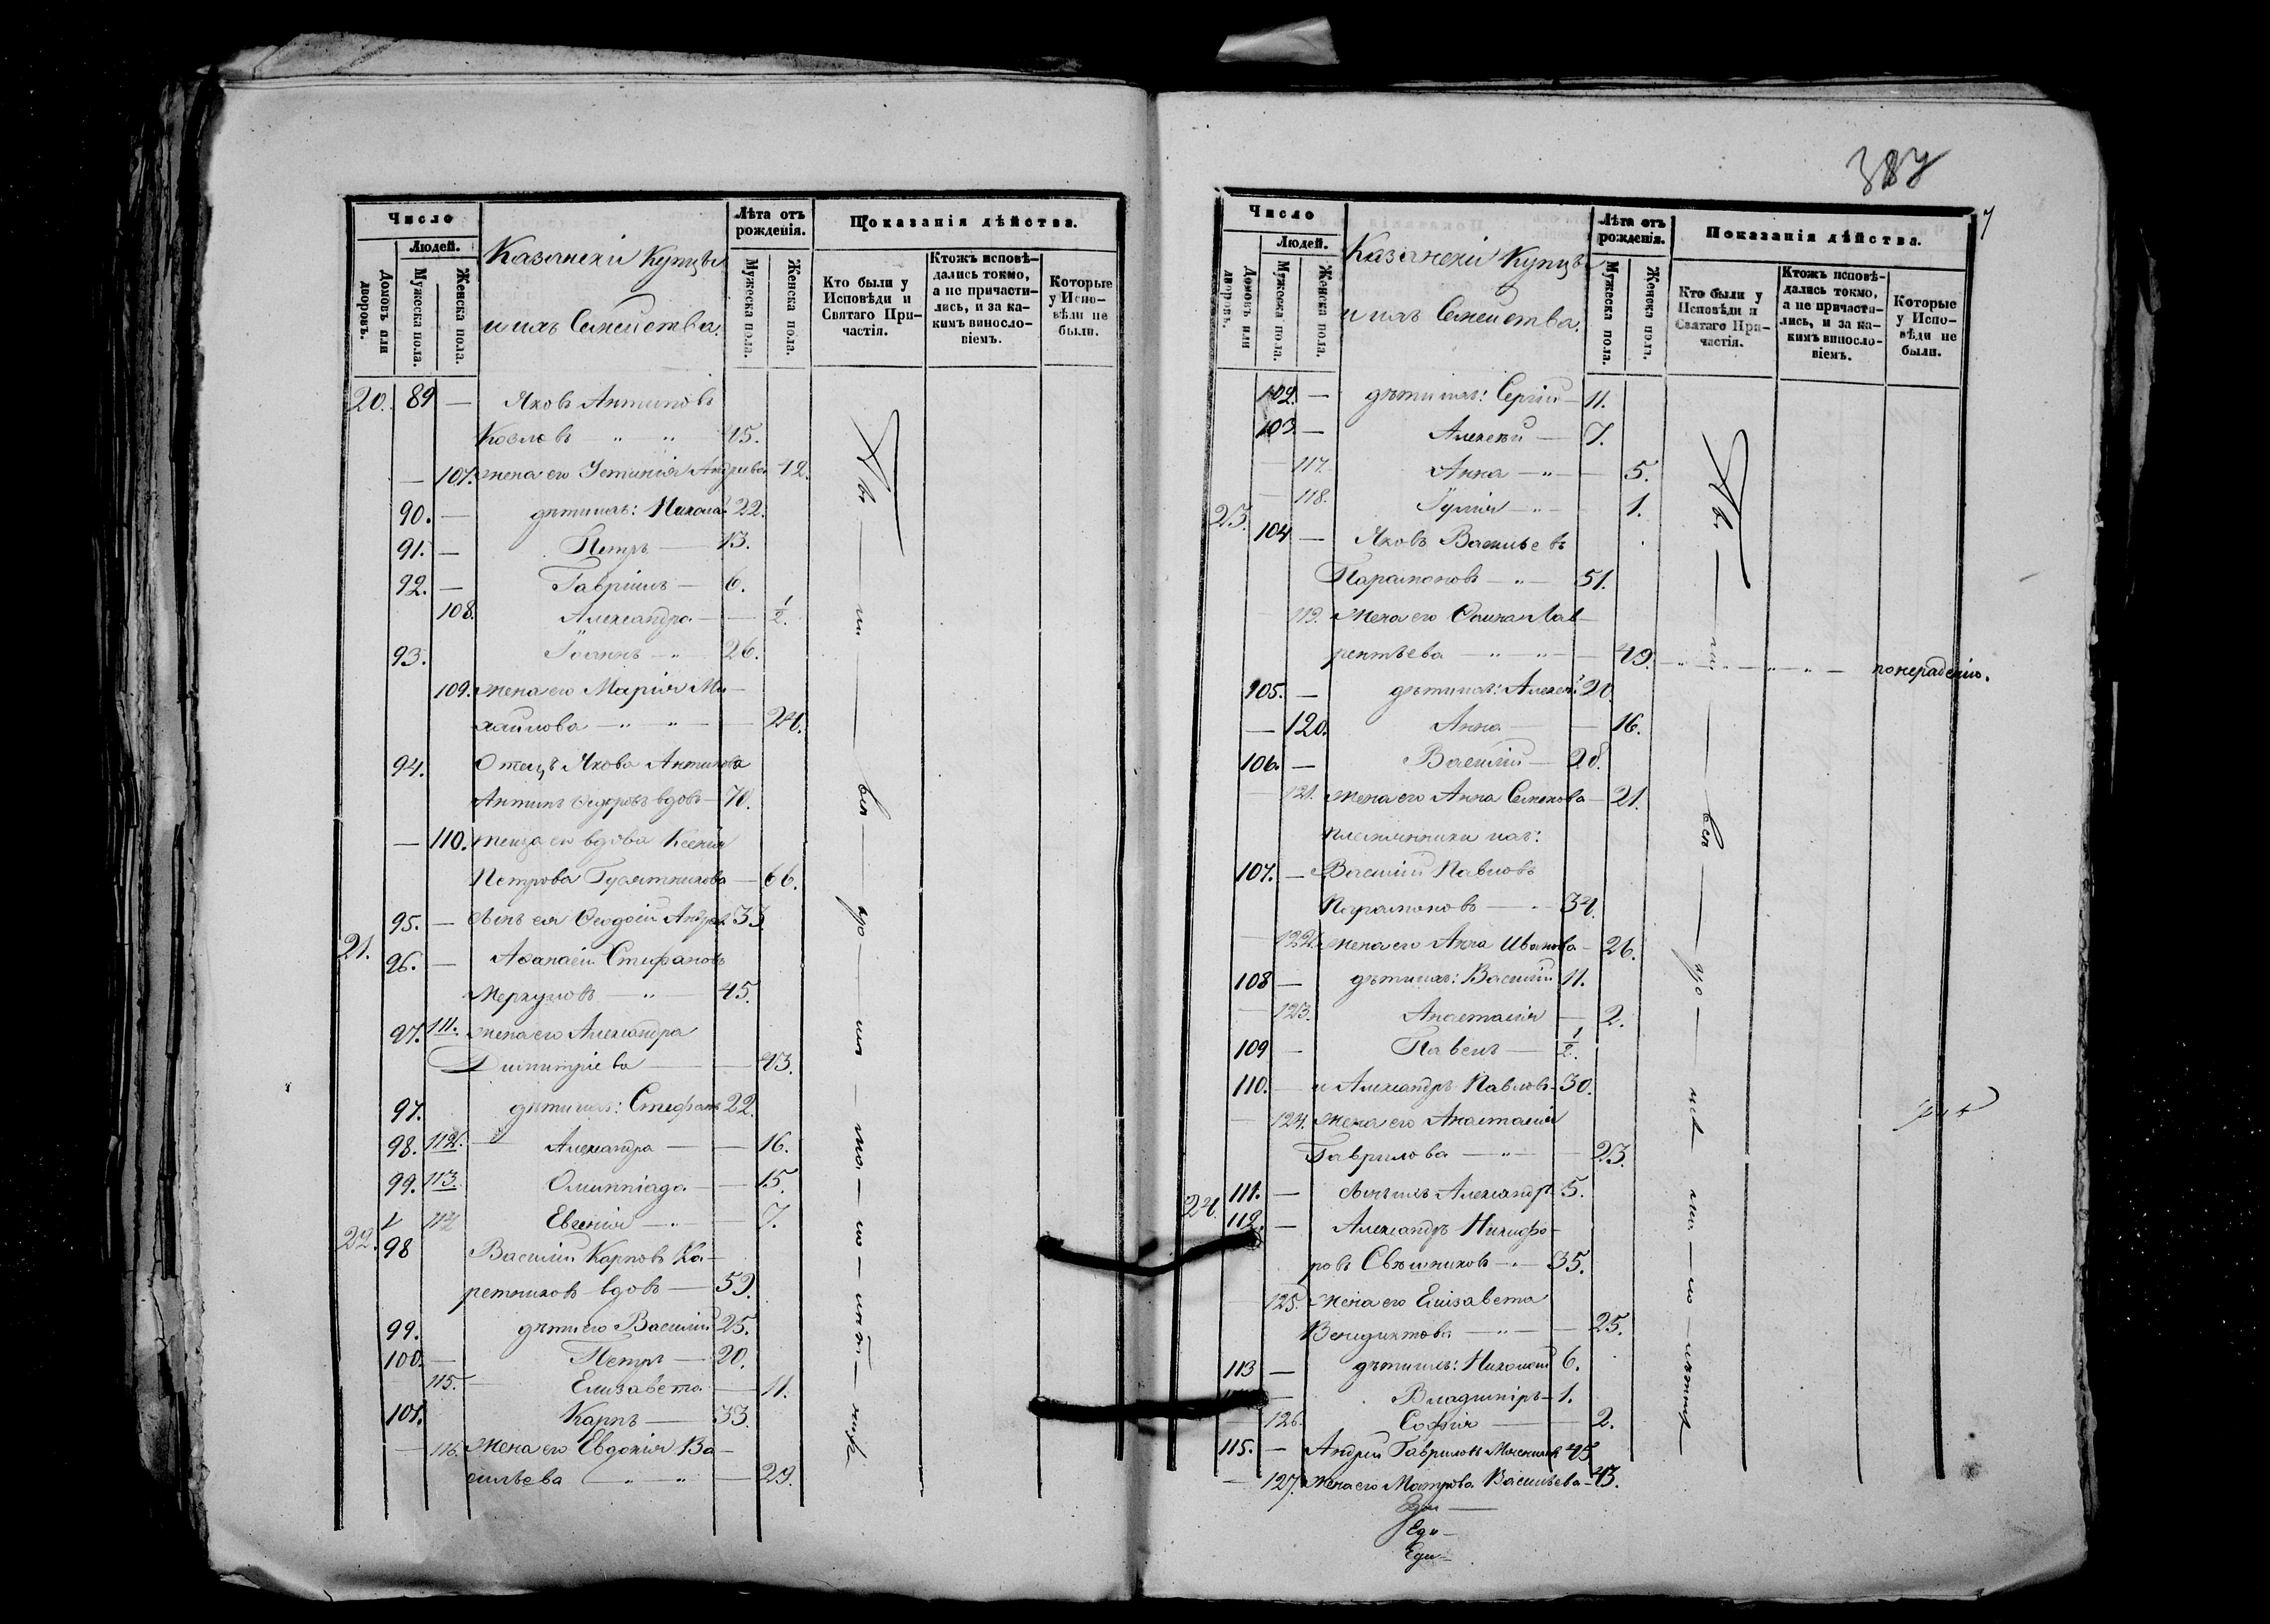 Число
Людей.
Домовъ или дворовъ.
Мужеска пола.
Женска пола.
Казанскіи Купцы
и ихъ Семейства.
Лѣта отъ рожденія.
Мужеска пола.
Женска пола.
Показанія дѣйства.
Кто были у Исповѣди и Святаго Причастія.
Ктожъ исповѣдались токмо, а не причастились, и за какимъ винословіемъ.
Которые у Исповѣди не были.
20. 89 — Яковъ Антиповъ
Козловъ " — " 45.
— 107. жена его Устинія Андреева 42.
90. — дѣти ихъ: Никола 22.
91. — Петръ — 13.
92. — Гавріилъ — 6.
108. Александра — — 1/2.
93. Іоаннъ — " 26.
109. жена его Марія Ми-
хаилова — " — " — 24.
94. Отецъ Якова Антипова
Антипъ Ѳедоровъ вдовъ — 70.
— 110. теща его вдова Ксенія
Петрова Гусятникова — 66.
95. — сынъ ея Ѳеодосій 33.
21. 96. — Аѳанасій Стефановъ
Меркуловъ — " — 45.
97. 111. жена его Александра
Димитріева — — 43.
97. дѣти ихъ: Стефанъ 22.
98. 112. — Александра — — 16.
99. 113. Олимпіада — — 15.
114 Евгенія — " — 7.
22. 98 Василій Карповъ Ка-
ретниковъ вдовъ — 59.
99. дѣти его Василій 25.
100. — Петръ — 20.
115. — Елизавета — 11.
101. Карпъ — 33.
— 116. жена его Евдокія Ва-
сильева — " — " — 29.
387
7
Число
Людей.
Домовъ или дворовъ.
Мужеска пола.
Женска пола.
Казанскіи Купцы
и ихъ Семейства.
Лѣта отъ рожденія.
Мужеска пола.
Женска пола.
Показанія дѣйства.
Кто были у Исповѣди и Святаго Причастія.
Ктожъ исповѣдались токмо, а не причастились, и за какимъ винословіемъ.
Которые у Исповѣди не были.
102. — дѣти ихъ: Сергій — 11.
103. — Алексѣй — 7.
— 117. Анна — " — 5.
— 118. Іулія — " — 1.
23. 104 — Яковъ Васильевъ
Парамоновъ — " — 51.
119. жена его Лав-
рентьева — " — " — 49. — " — " — " — понерадѣнію.
105. — дѣти ихъ: Алексѣй 20
— 120. Анна — — 16.
106. — Василій — 28.
— 121. жена его Анна Семенова — 21.
племянники ихъ:
107. — Василій Павловъ
Парамоновъ — " — 34.
— 122. жена его Анна Иванова — 26.
108 — дѣти ихъ: Василій 11.
— 123. Анастасія — 2.
109 — Павелъ — 1/2.
110. — и Александръ Павловъ — 30.
— 124. жена его Анастасія
Гаврилова — " — — 23.
111. — сынъ ихъ Александръ 5.
24. 112. — Александръ Никифо-
ровъ Свѣшниковъ — " — 35.
125. жена его Елизавета
Венедиктова — " — — 25.
113 — дѣти ихъ: Николай 6.
— Владиміръ — 1.
— 126. Софія — — 2.
115. — Андрей Гавриловъ 45
— 127. жена его Матрона Васильева — 43.
Еди-
Еди-